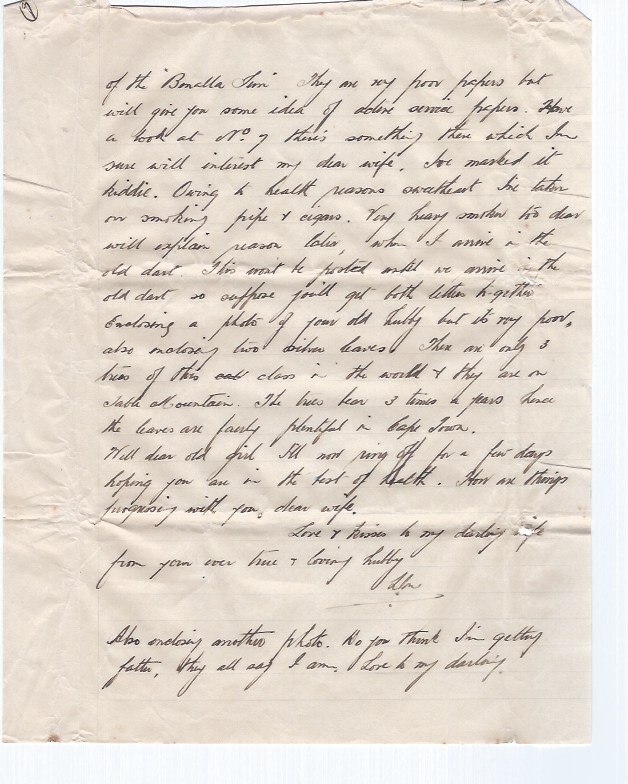 of the "Benalla Sun" They are very poor papers but
will give you some idea of active service papers. Have
a look at No 7 there's something there which I'm
sure will interest my dear wife. I've marked it
kiddie. Owing to health reasons sweetheart I've taken
on smoking pipe & cigars. Very heavy smoker too dear
will explain reason later, when I arrive in the
old dart. This wont be posted until we arrive in the
old dart so suppose you'll get both letters together
Enclosing a photo of your old hubby but its very poor,
also enclosing two silver leaves. There are only 3
trees of this class in the world & they are on
Table Mountain. The trees bear 3 times a year hence
the leaves are fairly plentiful in Cape Town.
Well dear old girl I'll now ring off for a few days
hoping you are in the best of health. How are things
progressing with you, dear wife.
Love & kisses to my darling wife
from your ever true & loving hubby
Also enclosing another photo. Do you think I'm getting
fatter, they all say I am. Love to my darling.